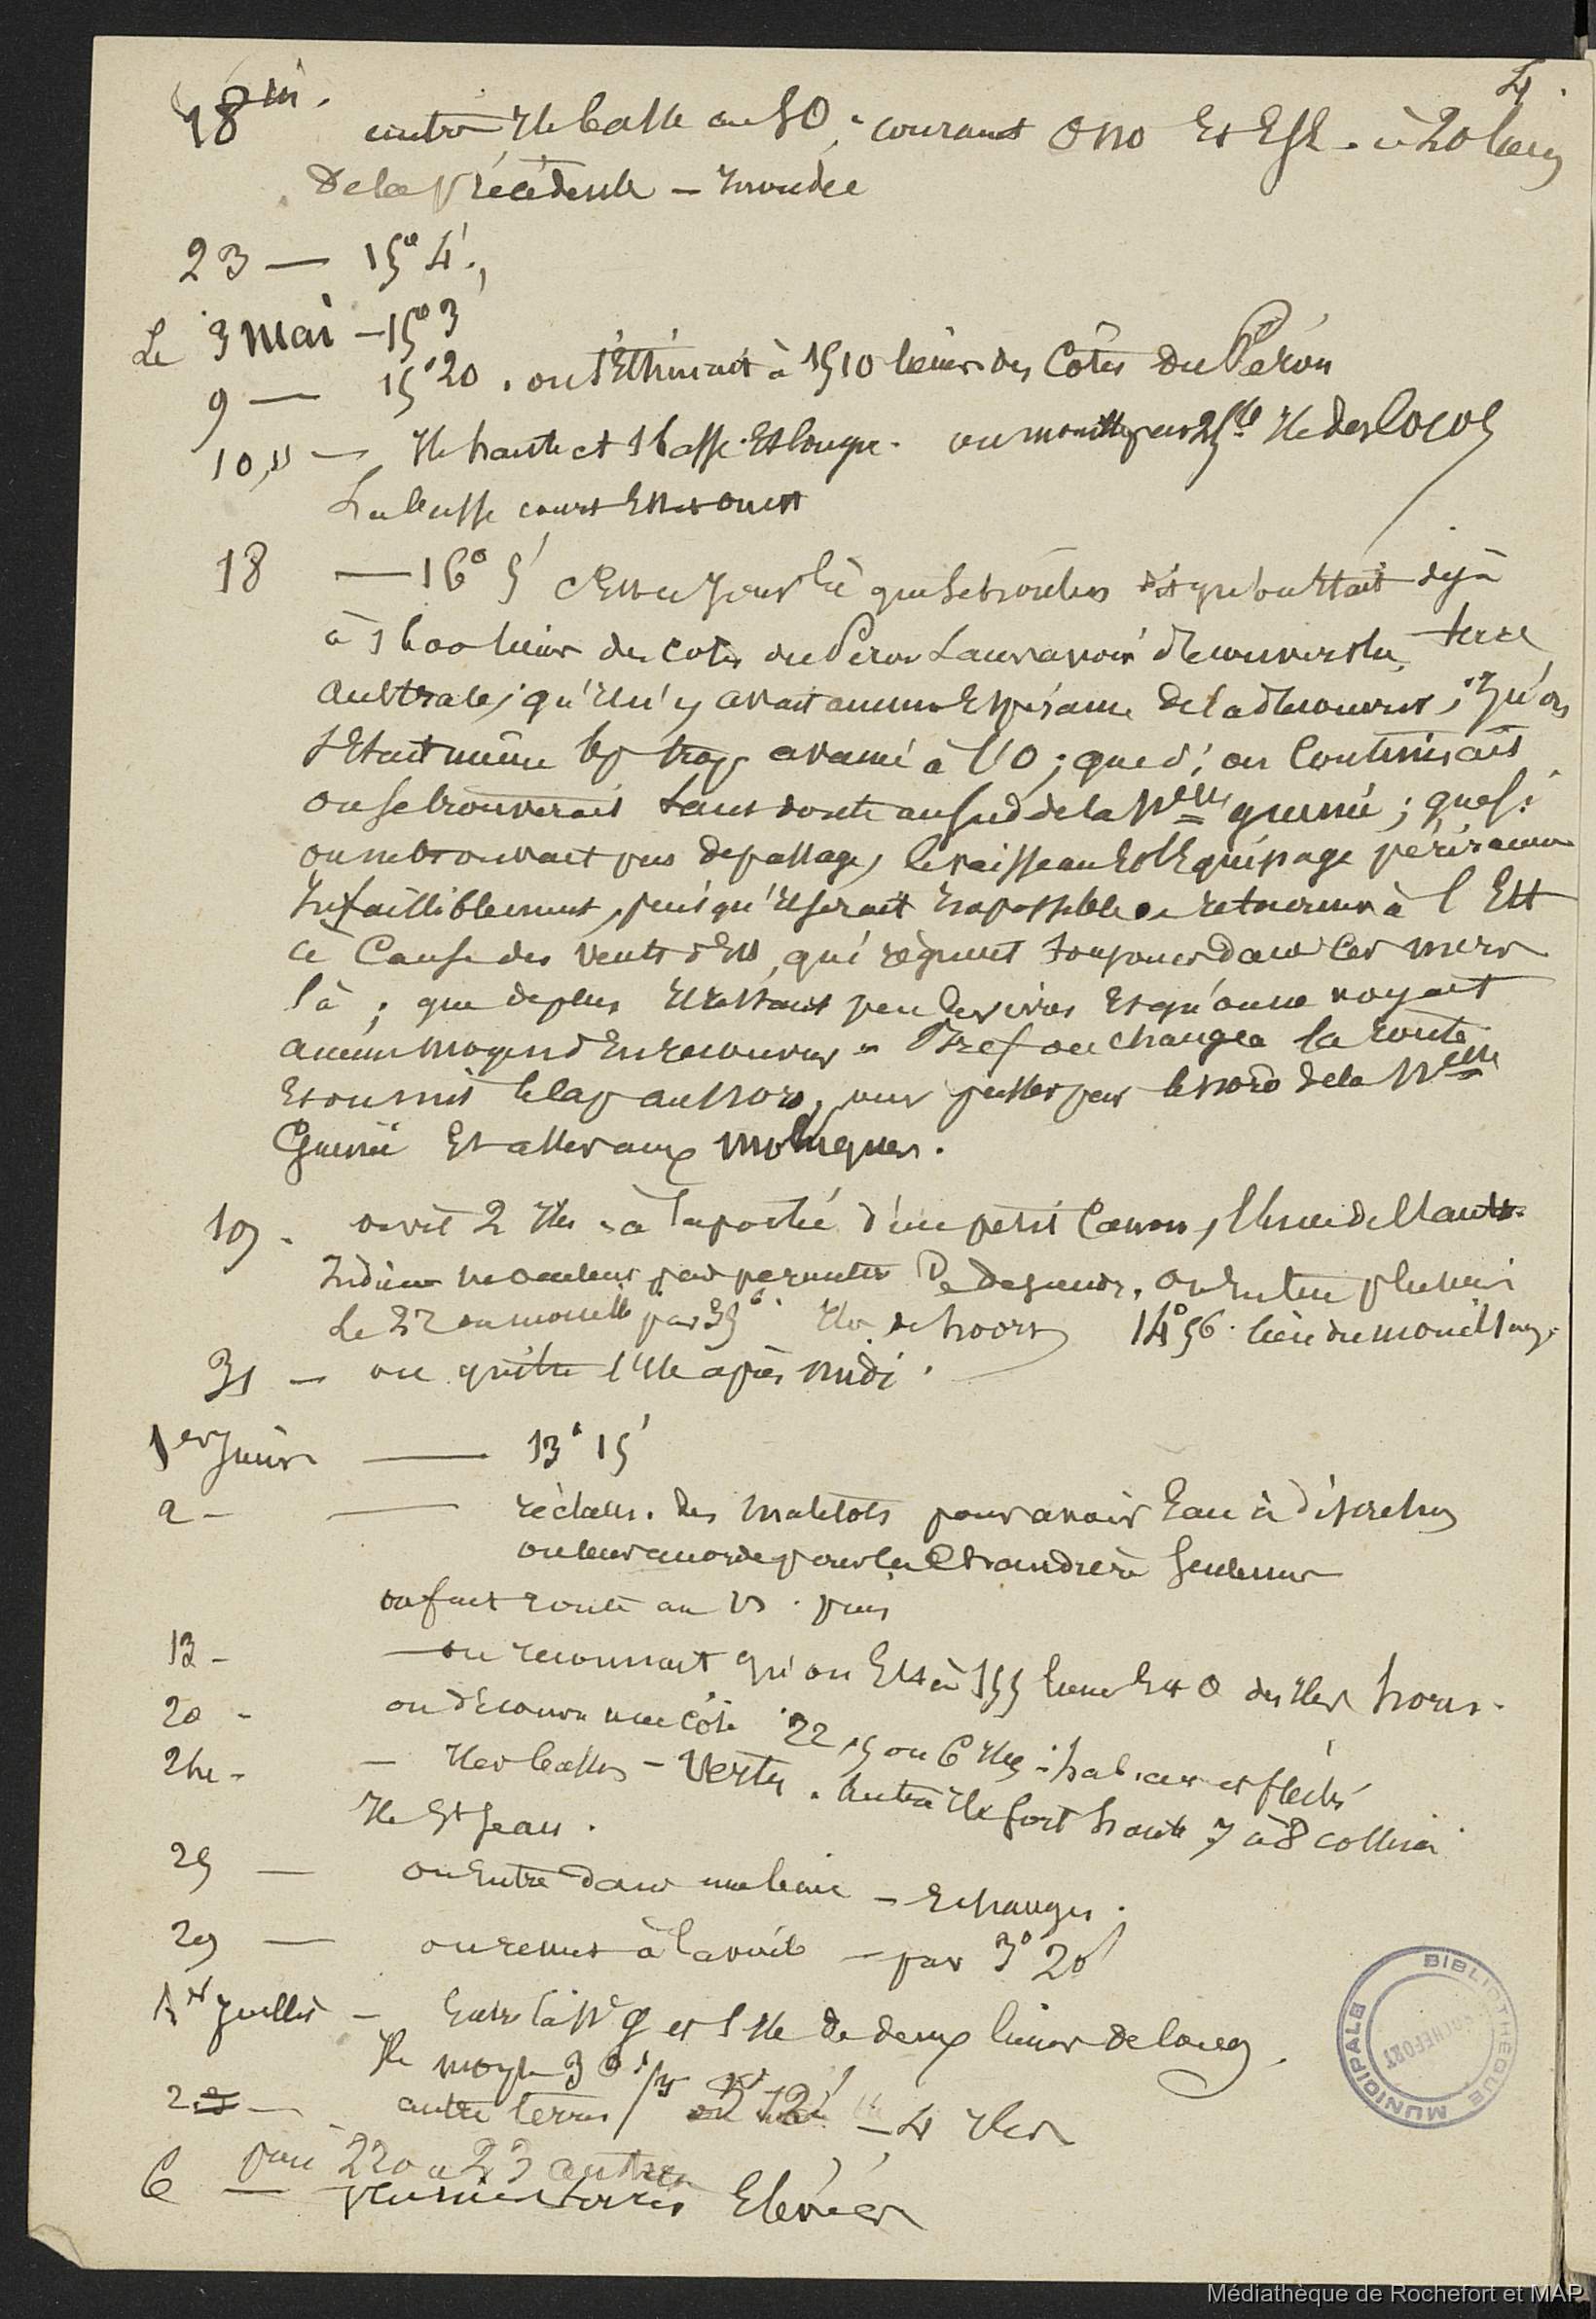 4.
18 m. autre Ile basse au SO, courant ONO Et ESE. à 20 lieues
De la précédente — Inondée
23 — 15° 4'.,
Le 3 Mai — 15° 3
9 — 15° 20. on s'Estimait à 1510 lieues des Côtes du Pérou
10, 11 — Ile haute et 1 basse Et longue. on mouille par 25 br Ile des Cocos
La basse court Est et ouest
18 — 16° 5' C'Est ce jour là que Schouten dit qu'on Etait déjà
à 1600 lieues des Cotes du Perou Sans avoir découvert la terre
australe; qu'il n'y avait aucune Espérance de la découvrir; qu'on
s'Etait même bp trop avancé à l'O; que si on Continuait
on se trouverait Sans doute au Sud de la Nelle guinée; que si
on ne trouvait pas de passage, le vaisseau Et l'Equipage périraient
Infailliblement, puisqu'il serait Impossible de retourner à l'Est
à Cause des vents d'Est, qui règnent toujours dans ces mers
là; que de plus Il restait peu de vivres Et qu'on ne voyait
aucun moyen d'En recouvrer — Bref on changea la route
Et on mit le Cap au Nord, pour passer par le nord de la Nelle
Guinée Et aller aux Moluques.
19. on vit 2 Iles à la portée d'un petit Canon, l'une de l'autre.
Indiens De descendre. On En tue plusieurs
Le 22 on mouille par 35 b. Iles de hoorn 14° 56' lieu du mouillage.
31 — on quitte l'Ile après midi.
1er Juin — 13° 15'
2 — — réclam. des Matelots pour avoir Eau à discrétion
on leur accorde pour la Chaudière Seulement
on fait route au N. puis
13 — — on reconnait qu'on Est à 155 lieues Est O des Iles horn.
20 — on découvre une côte 22, 5 ou 6 Iles — hab. arcs et flèches
24 — — Iles basses — Vertes. Autre Ile fort haute 7 à 8 collines
Ile St Jean.
25 — on Entre dans une baie — Echanges.
29 — on remet à la voile — par 3° 20'
1er Juillet — Entre la Nle g et 1 Ile de deux lieues de long.
Ile
2 — autre terres / 12' — 4 Iles
puis 22 ou 23 autres
6 — plusieurs terres Elevées
BIBLIOTHÈQUE MUNICIPALE ROCHEFORT
Médiathèque de Rochefort et MAP